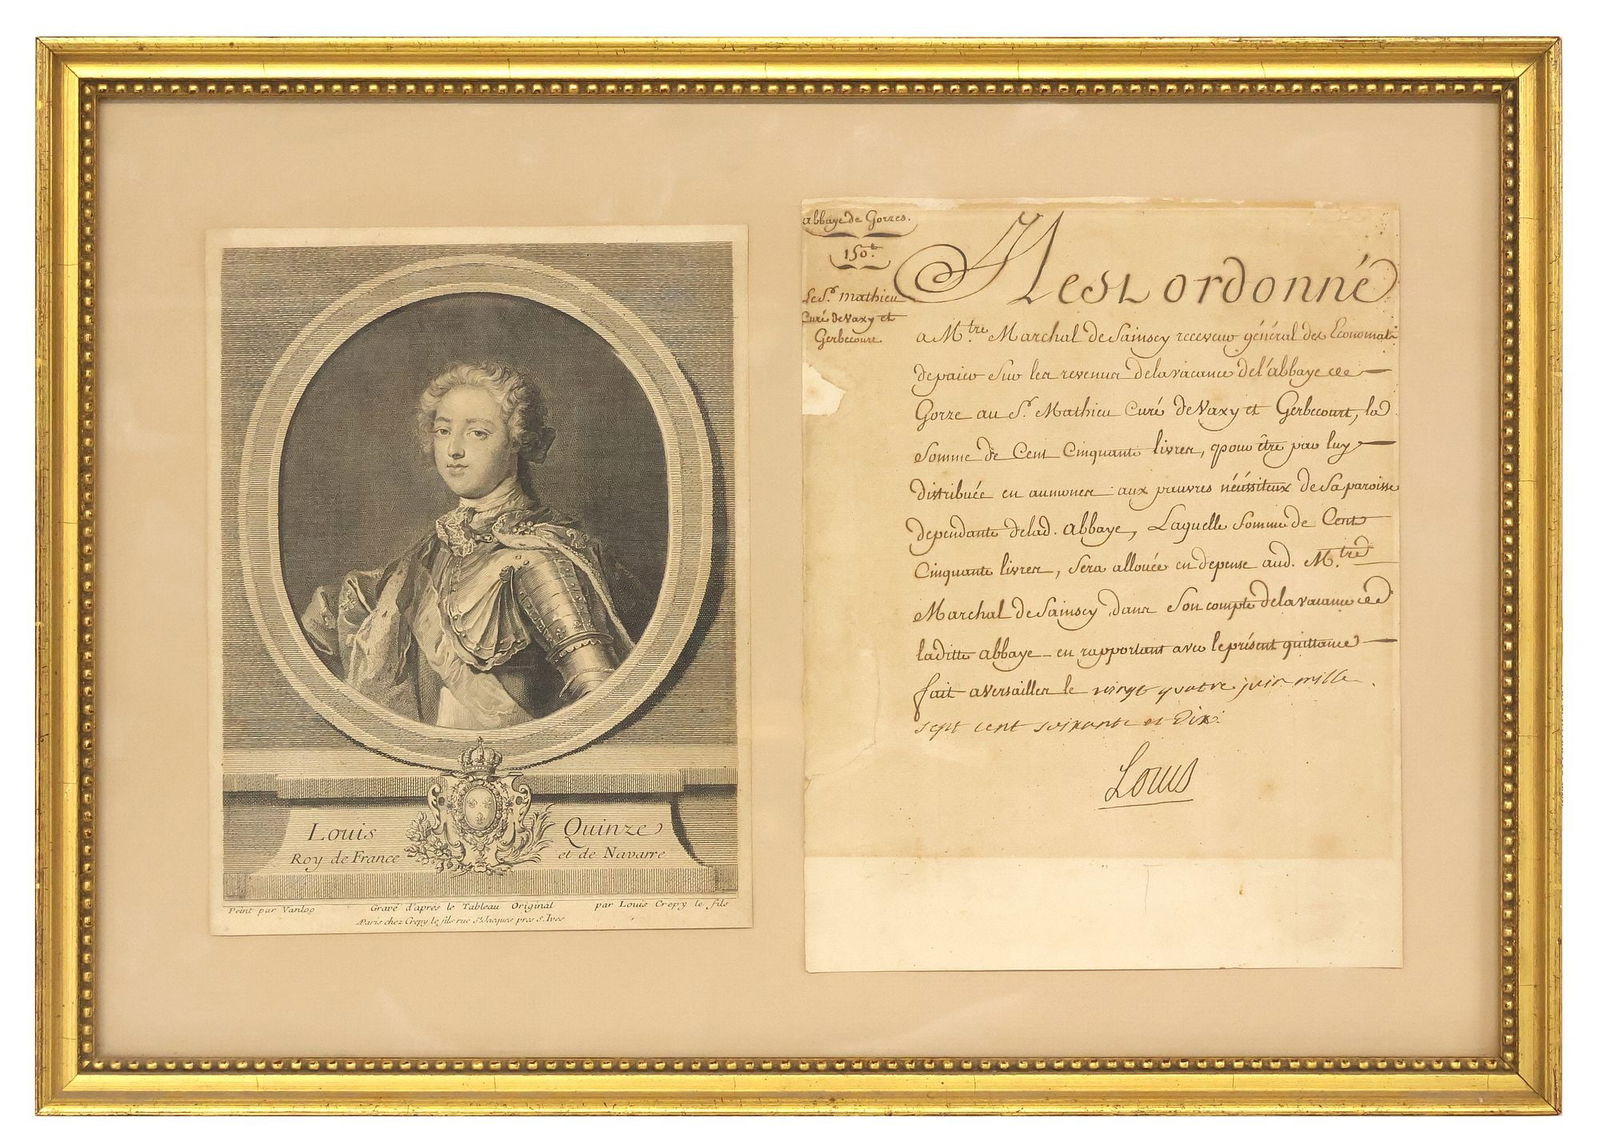 Louis Quinze
Roy de France et de Navarre
Peint par Vanloo Gravé d'après le Tableau Original par Louis Crepy le fils
A Paris chez Crepy le fils rue St. Jacques près S. Yves
abbaye de Gorzes.
150.₶
Le S.r Mathieu
Curé de Vaxy et
Gerbecourt
Il est ordonné
a M.tre Marchal de Sainscy receveur général des Economats
de païer sur les revenus de la vacance de l'abbaye de
Gorze au S.r Mathieu Curé de Vaxy et Gerbecourt, la
Somme de Cent Cinquante livres, pour être par luy
distribuée en aumones aux pauvres nécéssiteux de Sa paroisse
dependante de lad. abbaye, Laquelle Somme de Cent
Cinquante livres, Sera allouée en depense aud. M.tre
Marchal de Sainscy dans Son compte de la vacance de
laditte abbaye en rapportant avec le présent quittance
fait a Versailles le vingt quatre juin mille
sept cent soixante et dix.
Louis